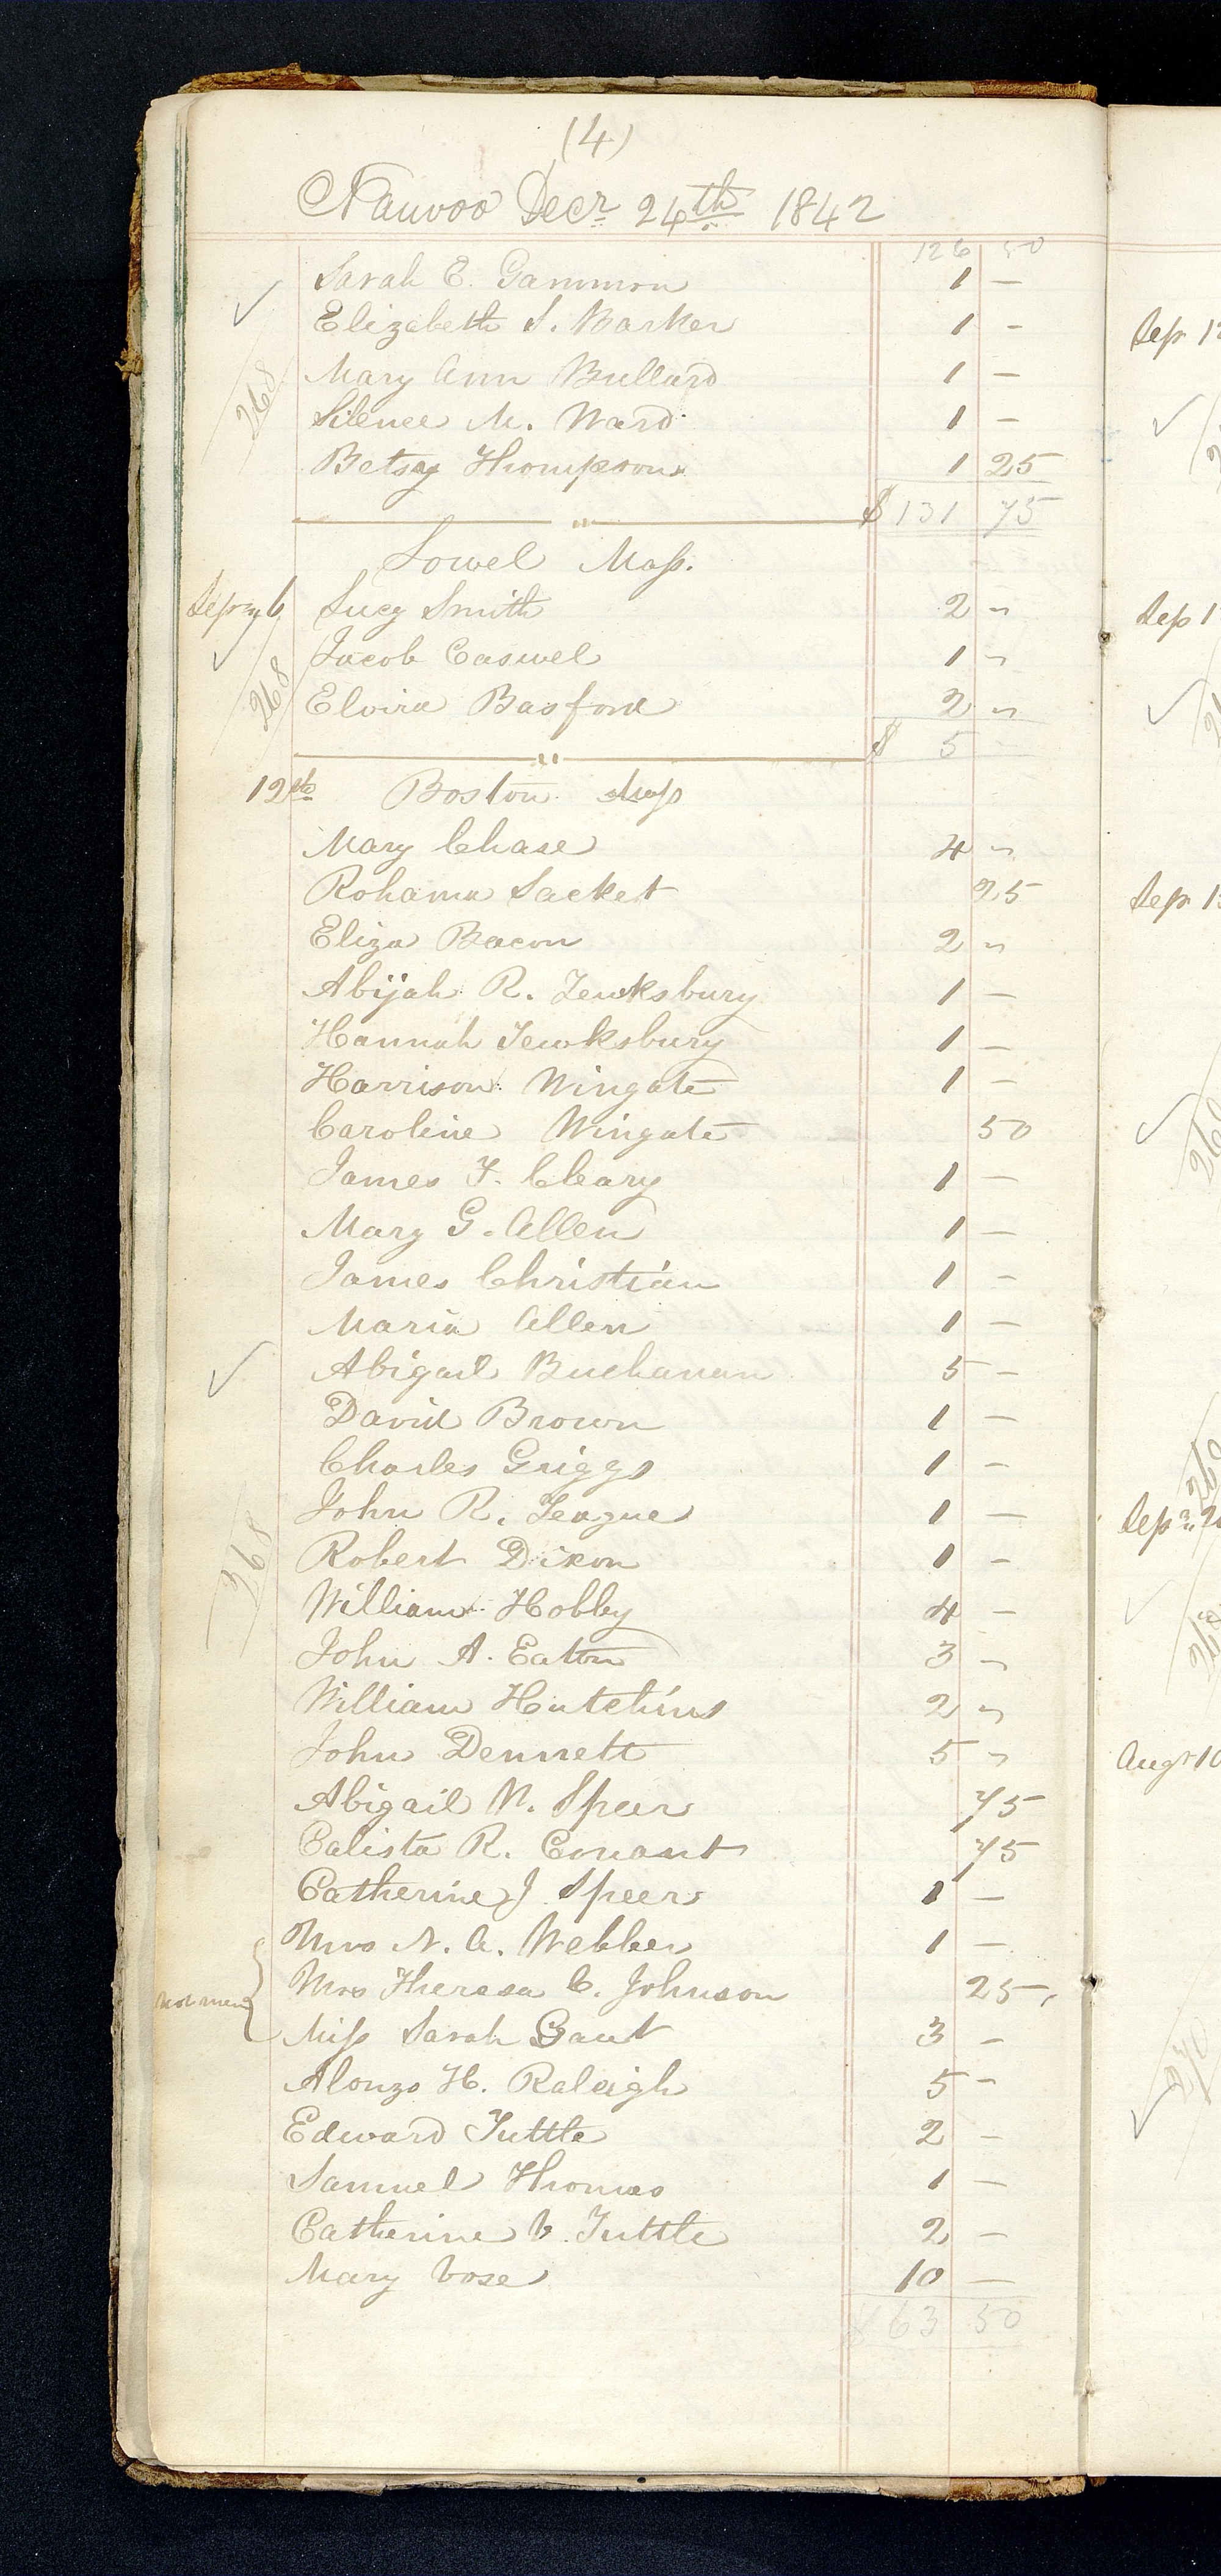 (4)
Nauvoo Decr 24th 1842
126 50
Sarah E. Gammon 1 —
Elizabeth S. Barker 1 -
268
Mary Ann Bullard 1 —
Silence M. Ward 1 —
Betsey Thompson 1 25
$131 75
Lowel Mass.
Lucy Smith 2 "
Jacob Caswel 1 "
268
Elvira Basford 2 "
$ 5 -
12th Boston Mass
Mary Chase 4 "
Rohama Sacket 25
Eliza Bacon 2 "
Abijah R. Tewksbury 1 —
Hannah Tewksbury 1 —
Harrison Wingate 1 —
Caroline Wingate 50
James F. Cleary 1 —
Mary G. Allen 1 —
James Christian 1 -
Maria Allen 1 —
Abigail Buchanan 5 -
David Brown 1 —
Charles Griggs 1 -
John R. Teague 1 —
268
Robert Dixon 1 -
William Hobby 4 -
John A. Eaton 3 "
William Hutchins 2 "
John Dennett 5 "
Abigail N. Speer 75
Calista R. Conant 75
Catherine J Speer 1 —
Mrs N. A. Webber 1 —
Mrs Theresa C. Johnson 25
not mem
Miss Sarah Gant 3 -
Alonzo H. Raleigh 5 -
Edward Tuttle 2 -
Samuel Thomas 1 —
Catherine V. Tuttle 2 —
Mary Vose 10 —
$ 63 50
Sep 1
Sep 1
Sep 1
Augt 10
270